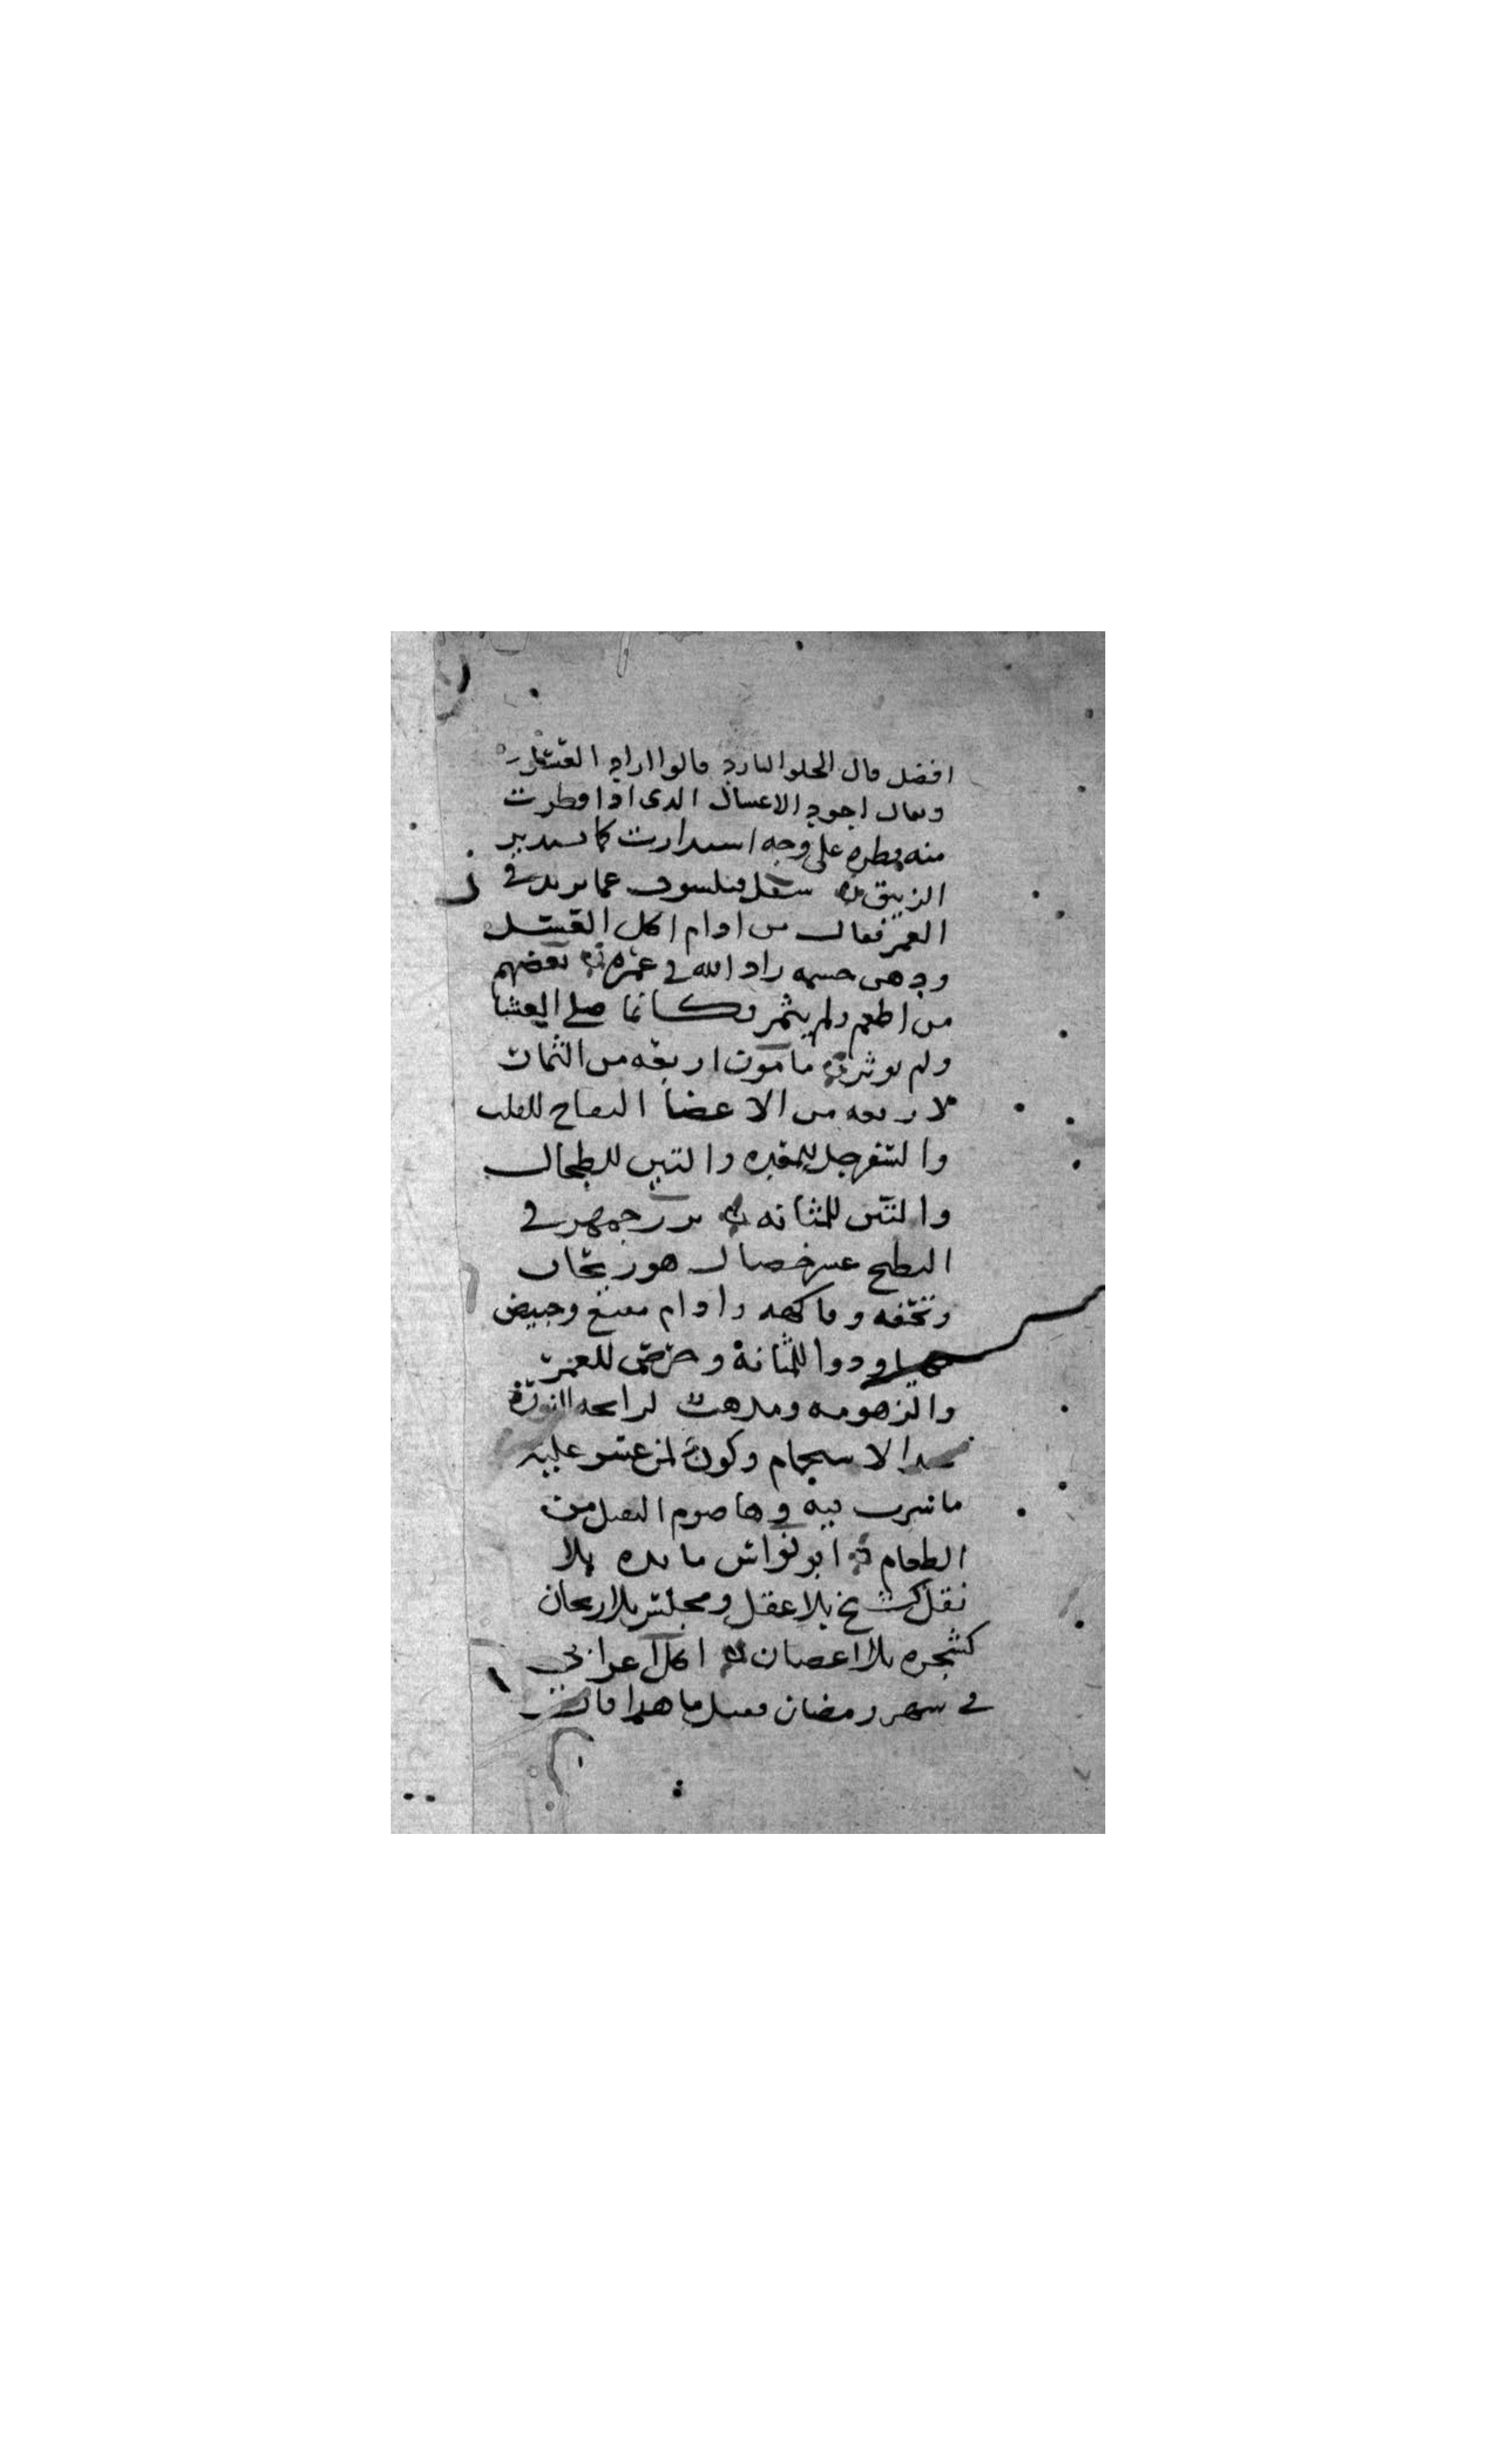 افضل قال الحلو البارد قالوا اراد العسل
ويقال اجود الاعسال الذى اذا قطرت
منه قطرة على وجه استدارت كما يستدير
الزيبق سئل فيلسوف عما يزيد في
العمر فقال من ادام اكل العسل
ودهن جسمه زاد الله في عمره بعضهم
من اطعم ولم يثمر فكانما صلى العشا
ولم يوتر مامون اربعه من الثمار
لاربعه من الاعضا التفاح للقلب
والسفرجل للمعده والتين للطحال
وا للمثانه بزرجمهر في
البطيخ عشر خصال هو ريحان
وتحفه وفاكهه وادام مقنع وخبيص
ودوا للمثانة و للغمر
والزهومه ومذهب لرايحه النورة
الاستحمام وكوز لمن عسر عليه
ما شرب فيه وهاضوم الثقيل من
الطعام ابو نواس مايده بلا
نقل كشيخ بلا عقل ومجلس بلا ريحان
كشجره بلا اغصان اكل اعرابي
في شهر رمضان فقيل ما هذا قال